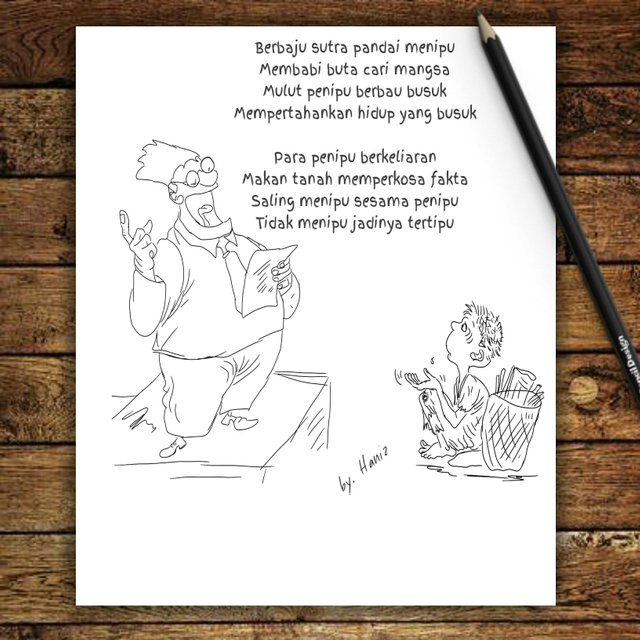 Berbaju sutra pandai menipu
Membabi buta cari mangsa
Mulut penipu berbau busuk
Mempertahankan hidup yang busuk
Para penipu berkeliaran
Makan tanah memperkosa fakta
Saling menipu sesama penipu
Tidak menipu jadinya tertipu
by. Haniz